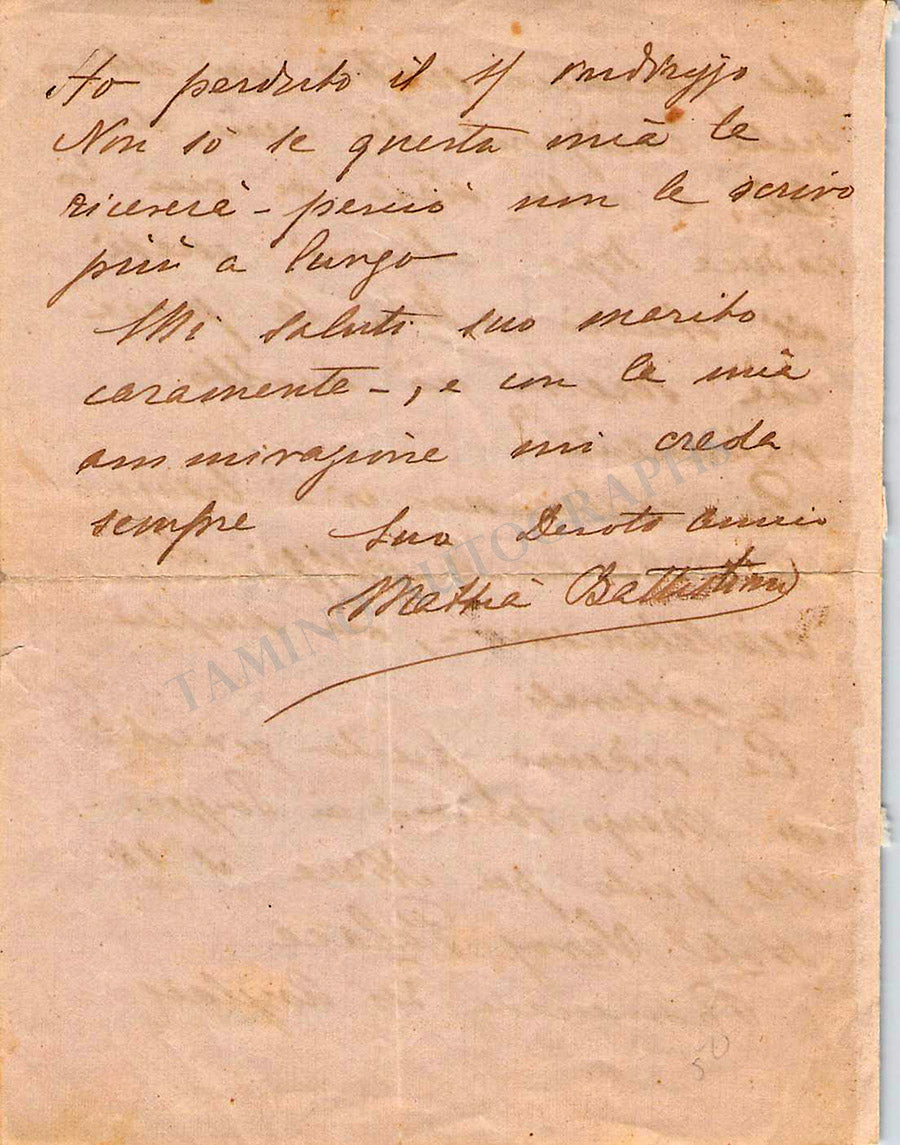 Ho perduto il
Non so se questa mia le
riceverà - perciò non le scrivo
più a lungo
Mi saluti suo marito
caramente -, e con la mia
ammirazione mi creda
sempre Suo Devoto amico
Mattia Battistini
TAMINO AUTOGRAPHS
50